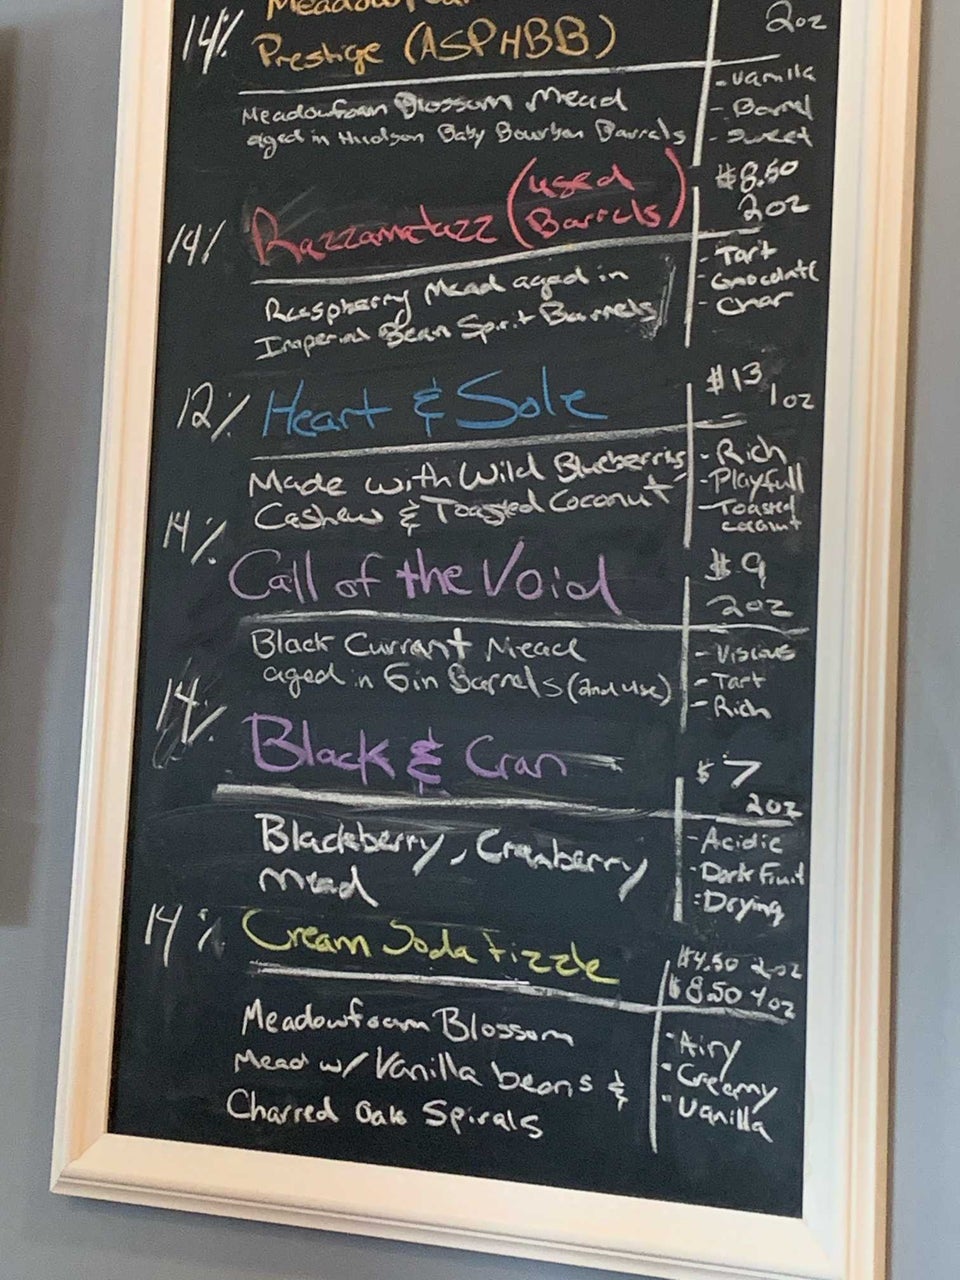 14%
Prestige (ASPHBB)
2oz
Meadowfoam Blossom Mead
aged in Hudson Baby Bourbon Barrels
- Vanilla
- Barrel
- Sweet
14%
Razzamatazz (used Barrels)
$8.50
2oz
Raspberry Mead aged in
Imperial Bean Spirit Barrels
- Tart
- Chocolate
- Char
12%
Heart & Sole
$13
1oz
Made with Wild Blueberries
Cashew & Toasted Coconut
- Rich
- Playfull
- Toasted
coconut
14%
Call of the Void
$9
2oz
Black Currant Mead
aged in Gin Barrels (2nd use)
- Viscous
- Tart
- Rich
14%
Black & Cran
$7
2oz
Blackberry, Cranberry
Mead
- Acidic
- Dark Fruit
- Drying
14%
Cream Soda Fizzle
$4.50 2oz
$8.50 4oz
Meadowfoam Blossom
Mead w/ Vanilla beans &
Charred Oak Spirals
- Airy
- Creamy
- Vanilla